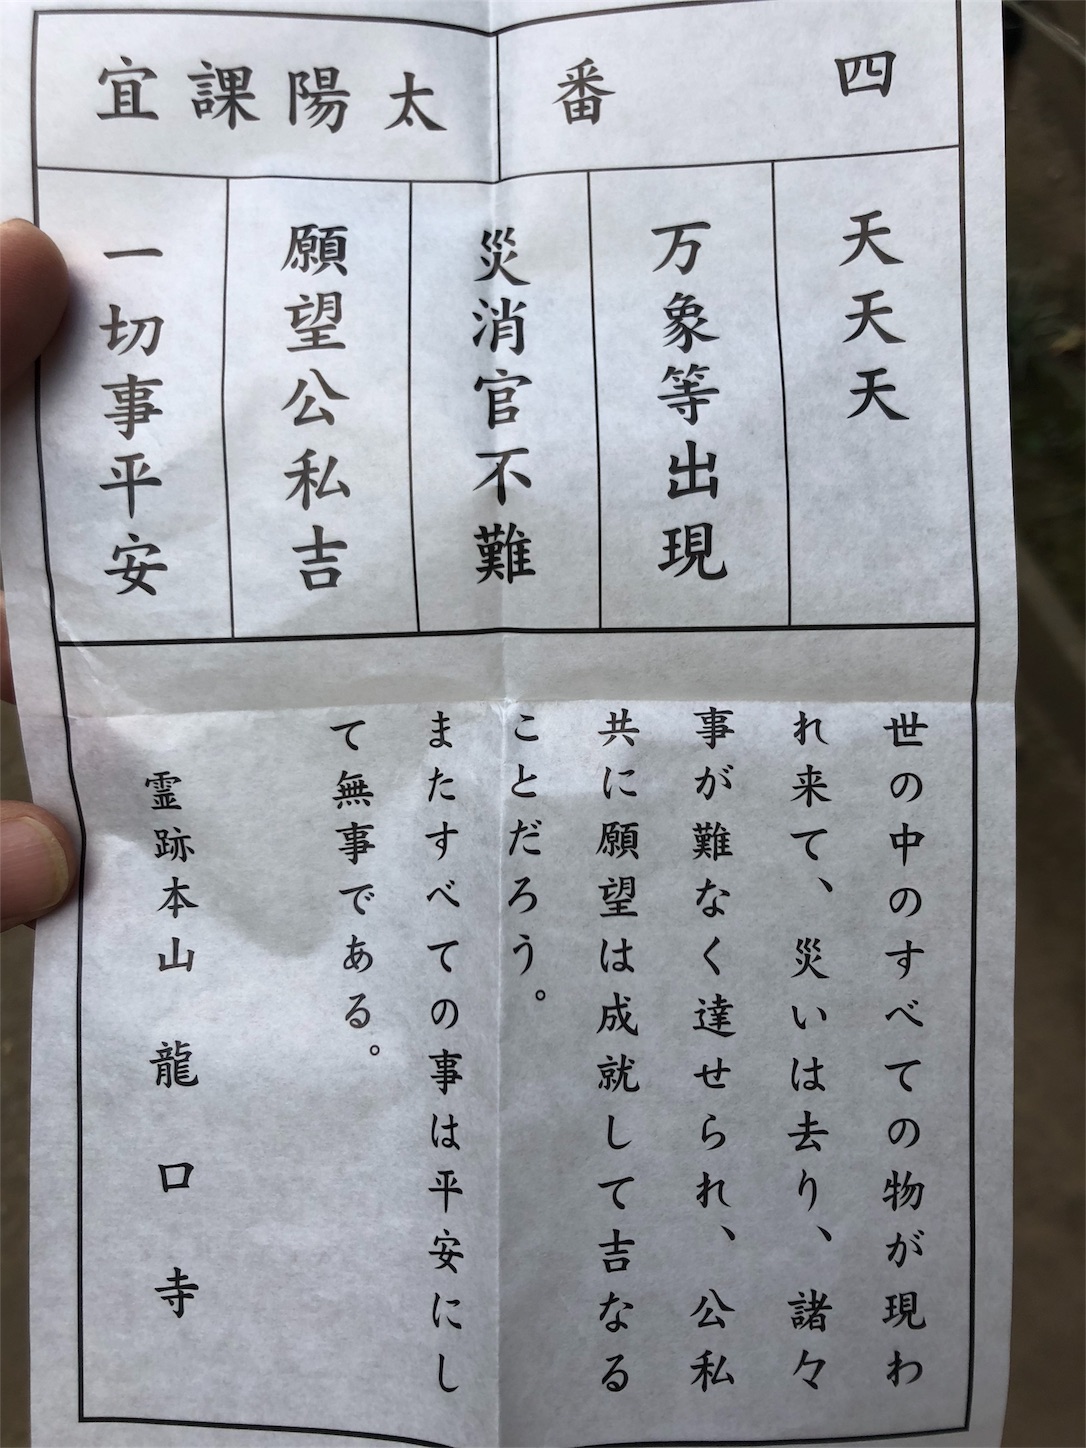 四番
太陽課宜
天天天
万象等出現
災消官不難
願望公私吉
一切事平安
世の中のすべての物が現わ
れ来て、災いは去り、諸々
事が難なく達せられ、公私
共に願望は成就して吉なる
ことだろう。
またすべての事は平安にし
て無事である。
霊跡本山 龍口寺